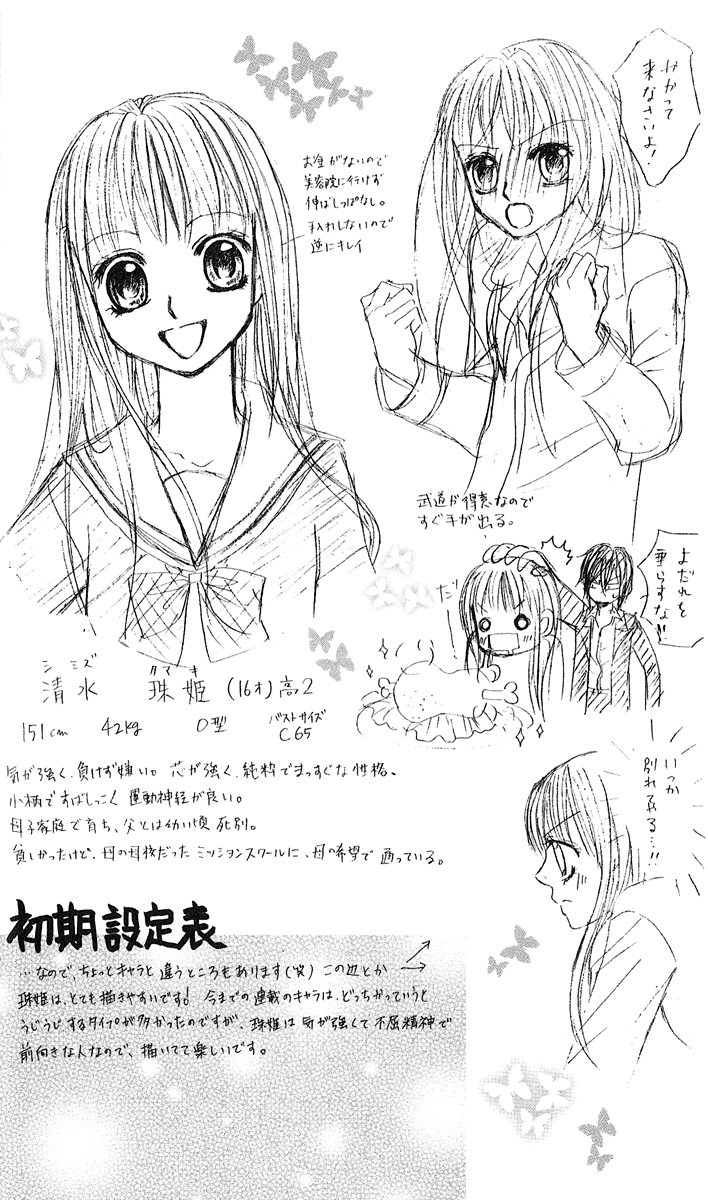 やかって
来なさいよ!
お金がないので
美容院に行けず
伸ばしっぱなし。
手入れしないので
逆にキレイ
武道が得意なので
すぐ手が出る。
だ
よだれを
垂らすな!!
シミズ タマキ
清水 珠姫 (16才) 高2
151cm 42kg O型 バストサイズ
C65
気が強く、負けず嫌い。芯が強く、純粋でまっすぐな性格。
小柄ですばしっこく運動神経が良い。
母子家庭で育ち、父とは幼い頃死別。
貧しかったけど、母の母校だったミッションスクールに、母の希望で通っている。
いつか
別れてやる…!!
初期設定表
…なので、ちょっとキャラと違うところもあります(笑) この辺とか
珠姫は、とても描きやすいです! 今までの連載のキャラは、どっちかっていうと
うじうじするタイプが多かったのですが、珠姫は気が強くて不屈精神で
前向きな人なので、描いてて楽しいです。